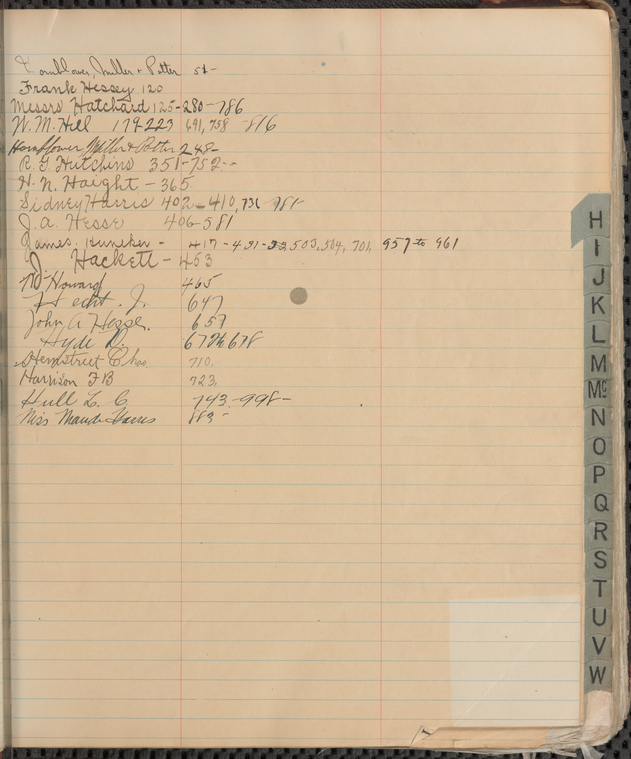 Hornblower, Miller & Potter 51-
Frank Hessey 120
Messrs Hatchard 125-280-786
W. M. Hill 179-223 691, 758 -816
Hornblower Miller & Potter 248-
R. G Hutchins 351-752--
H. N. Haight - 365
Sidney Harris 402-410, 731 - 981-
J. a. Hesse 406-581
James. Huneker - 417-431-32, 503, 504, 701, 957 to 961
J. Hackett - 453
Howard 465
Hecht. J. 647
John A Hesse. 657
Hyde D. 677 678
Hemstreet Chas. 710.
Harrison FB 723.
Hull L. C. 743-998-
Miss Maude Harris 883-
H
I
J
K
L
M
Mc
N
O
P
Q
R
S
T
U
V
W